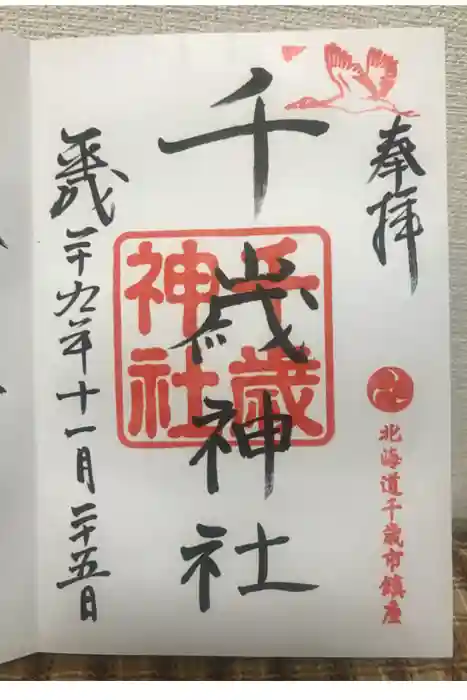 奉拝
北海道千歳市鎮座
千歳神社
千歳神社
平成二十九年十一月二十五日